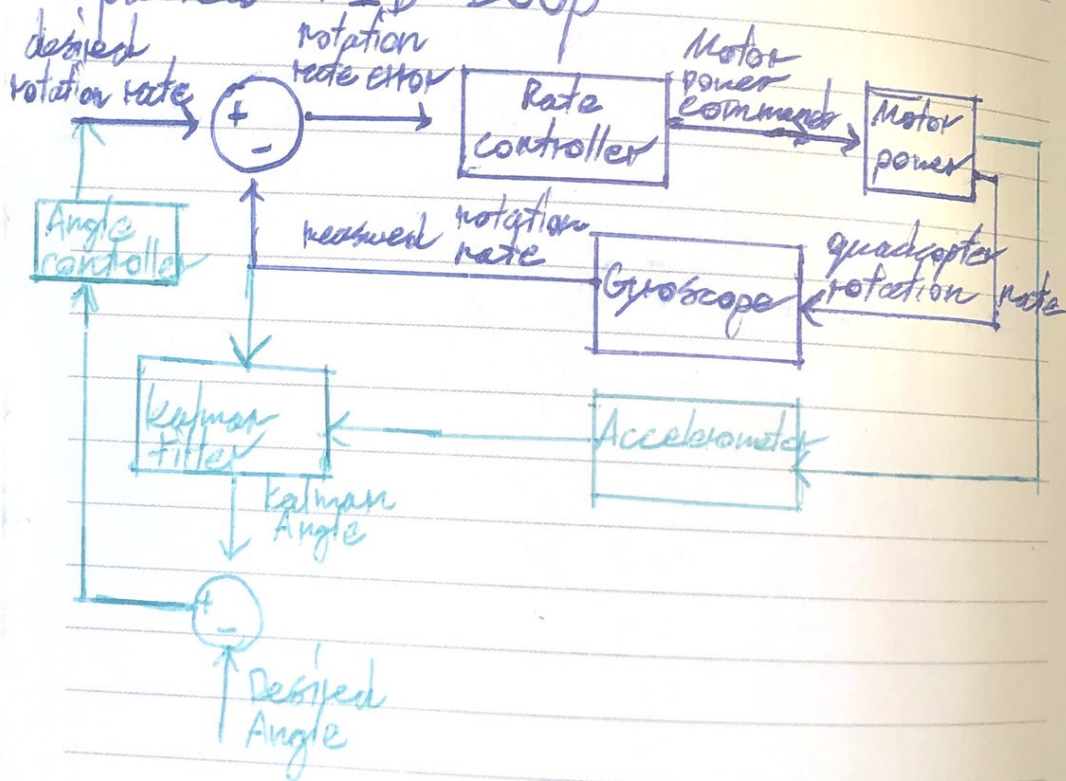 PID Loop
desired
rotation rate
rotation
rate error
Rate
controller
Motor
power
commands
Motor
power
+
-
Angle
controller
measured rotation
rate
Gyroscope
quadcopter
rotation rate
Kalman
Filter
Accelerometer
Kalman
Angle
+
-
Desired
Angle